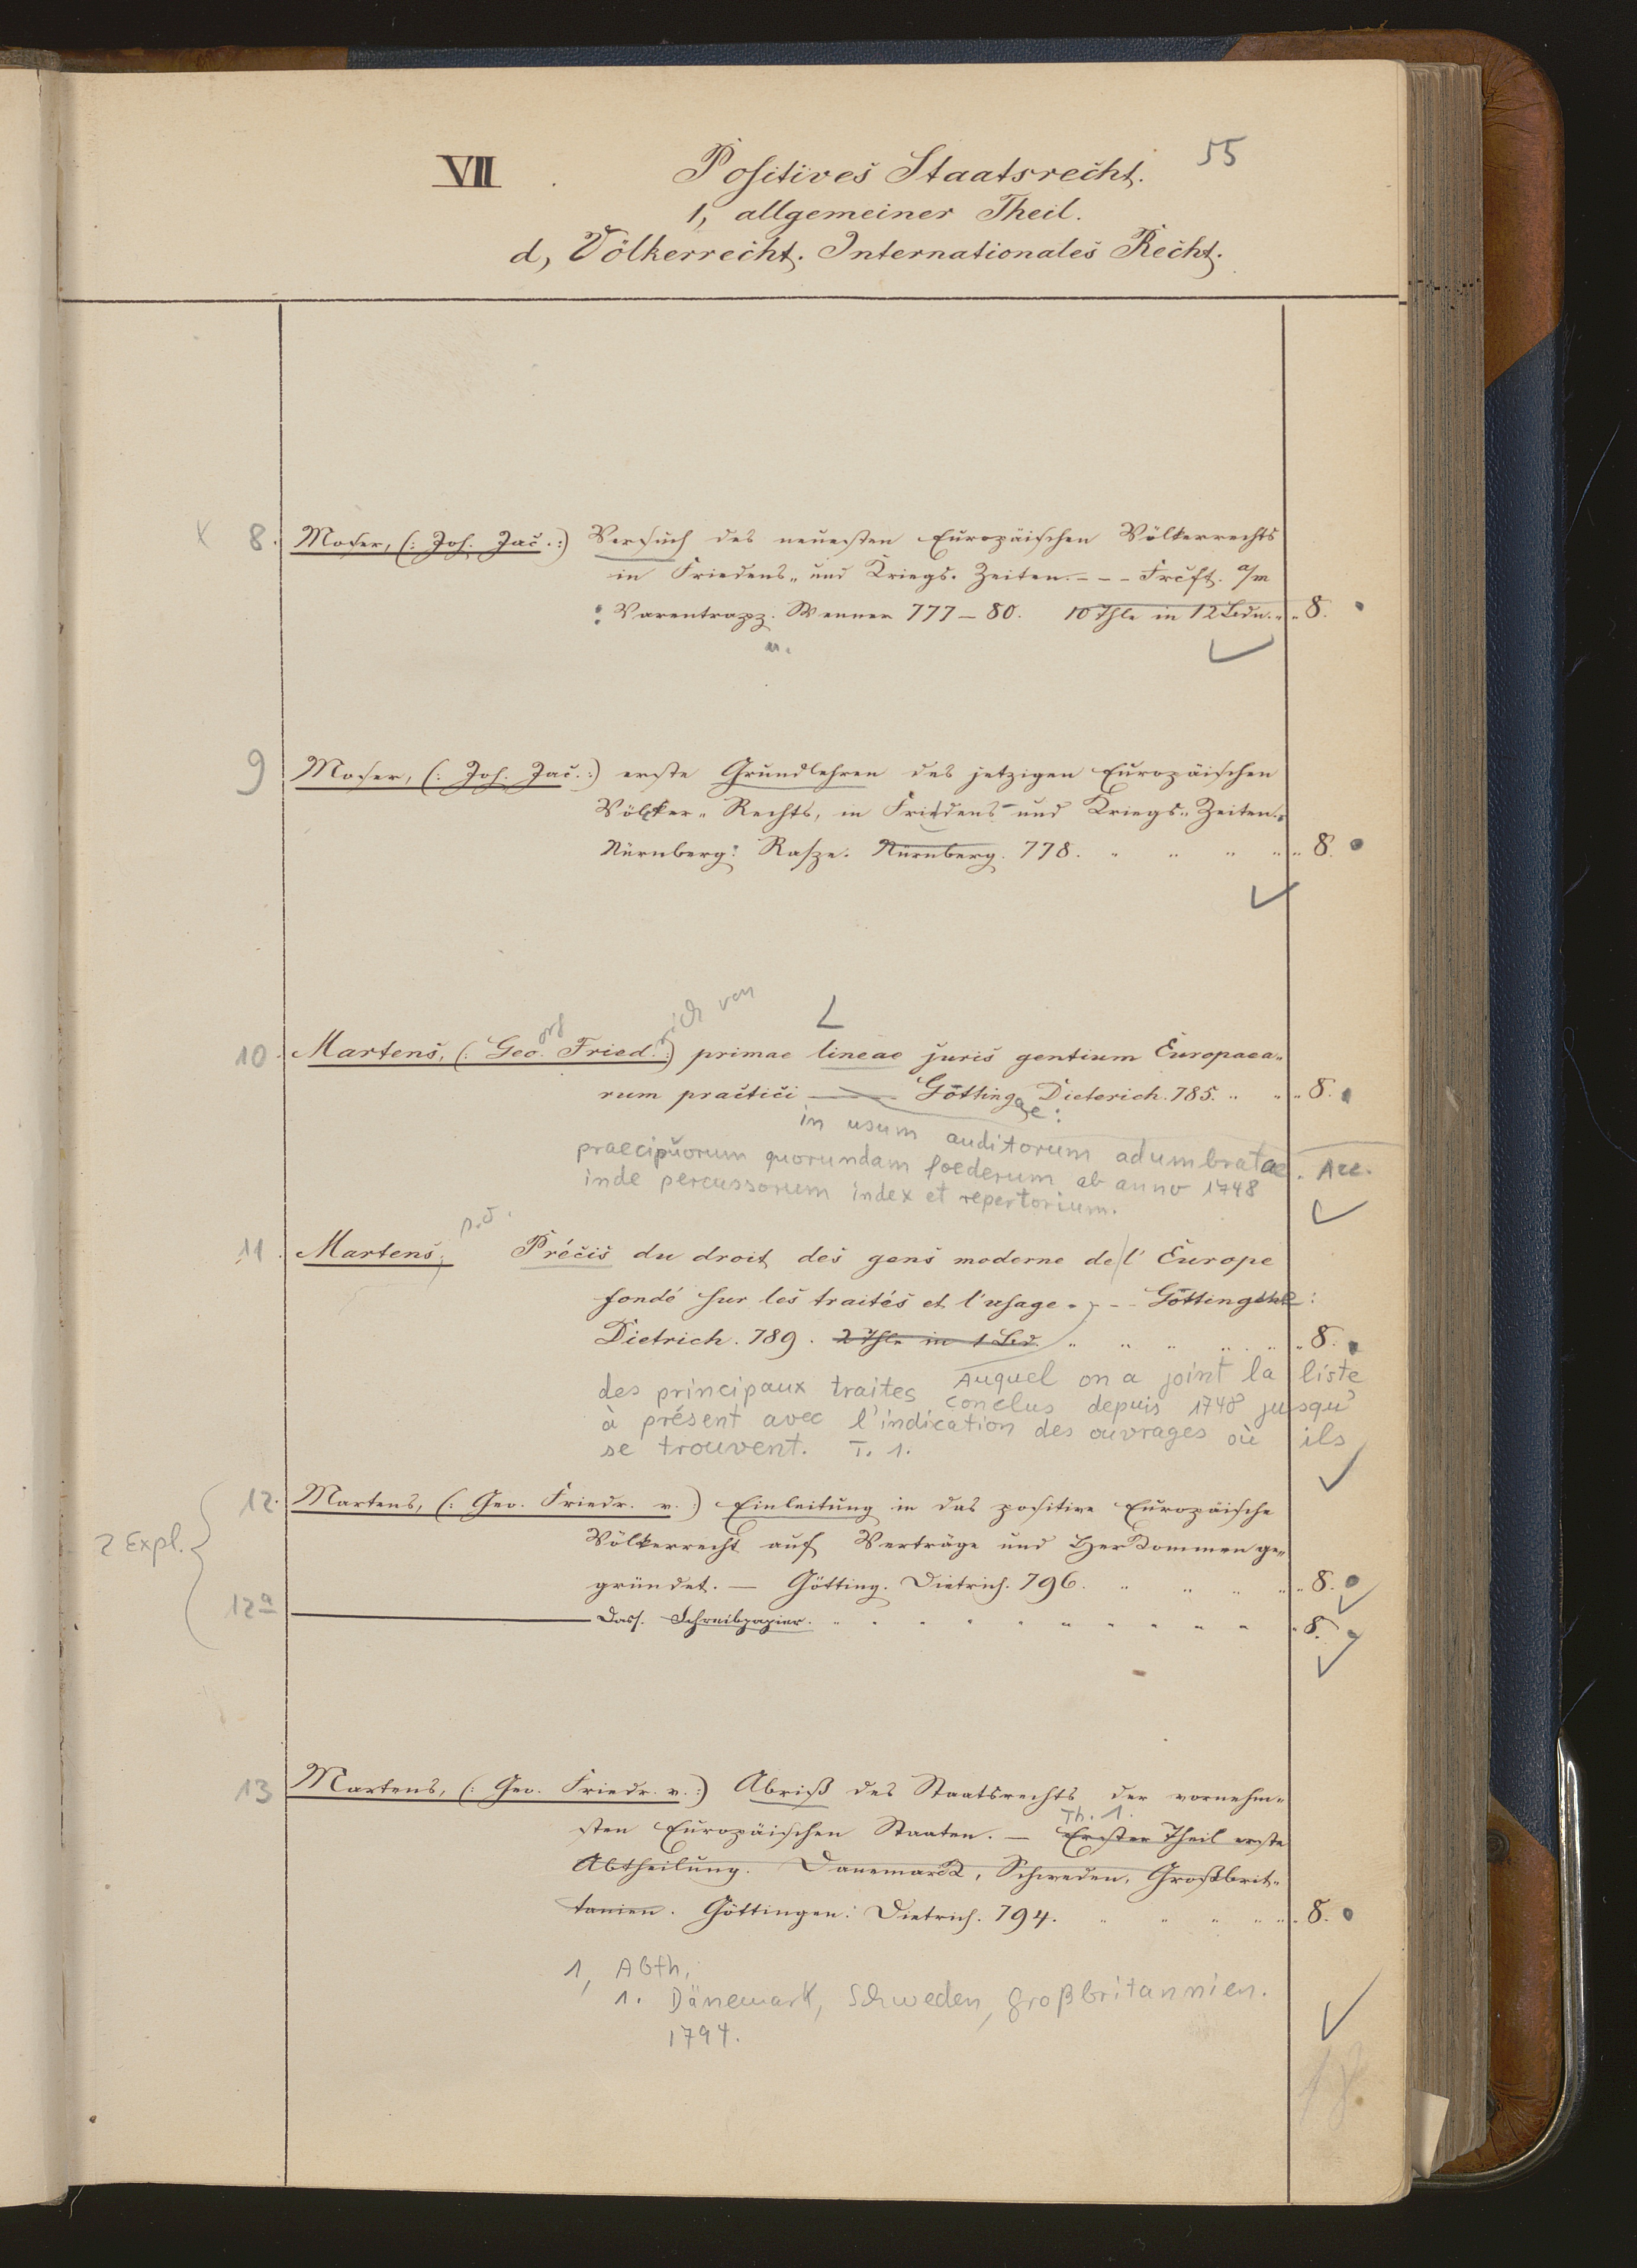 55
VII Positives Staatsrecht.
1, allgemeiner Theil.
d, Völkerrecht. Internationales Recht.
8. Moser, (: Joh. Jac. :) Versuch des neuesten Europäischen Völkerrechts
in Friedens- und Kriegs-Zeiten. - - - Frcft. a/m
: Varentrapp. Wenner 777–80. 10 Thle in 12 Bdn. 8.
u.
9 Moser, (: Joh. Jac. :) erste Grundlehren des jetzigen Europäischen
Völcker-Rechts, in Friedens- und Kriegs-Zeiten.
Nürnberg: Raspe. Nürnberg. 778. 8.
org rich von
10. Martens, (: Geo. Fried. :) primae lineae juris gentium Europaea-
rum practici — Göttingae: Dieterich. 785. 8.
in usum auditorum adumbratae. Acc.
praecipuorum quorundam foederum ab anno 1748
inde percussorum index et repertorium.
11. Martens, Précis du droit des gens moderne de l'Europe
fondé sur les traités et l'usage. - - - Götting:
Dietrich. 789. 2 Thle in 1 Bd. 8.
Auquel on a joint la liste
des principaux traites conclus depuis 1748 jusqu'
à présent avec l'indication des ouvrages où ils
se trouvent. T. 1.
12. Martens, (: Geo. Friedr. v. :) Einleitung in das positive Europäische
Völkerrecht auf Verträge und Herkommen ge-
2 Expl.
gründet. — Götting. Dietrich. 796. 8.
12a — Dass. Schreibpapier. 8.
13 Martens, (: Geo. Friedr. v. :) Abriß des Staatsrechts der vornehm-
Th. 1.
sten Europäischen Staaten. — Erster Theil erste
Abtheilung. Danemarck, Schweden, Großbrit-
tanien. Göttingen: Dietrich. 794. 8.
1, Abth,
1. Dänemark, Schweden, Großbritannien.
1794.